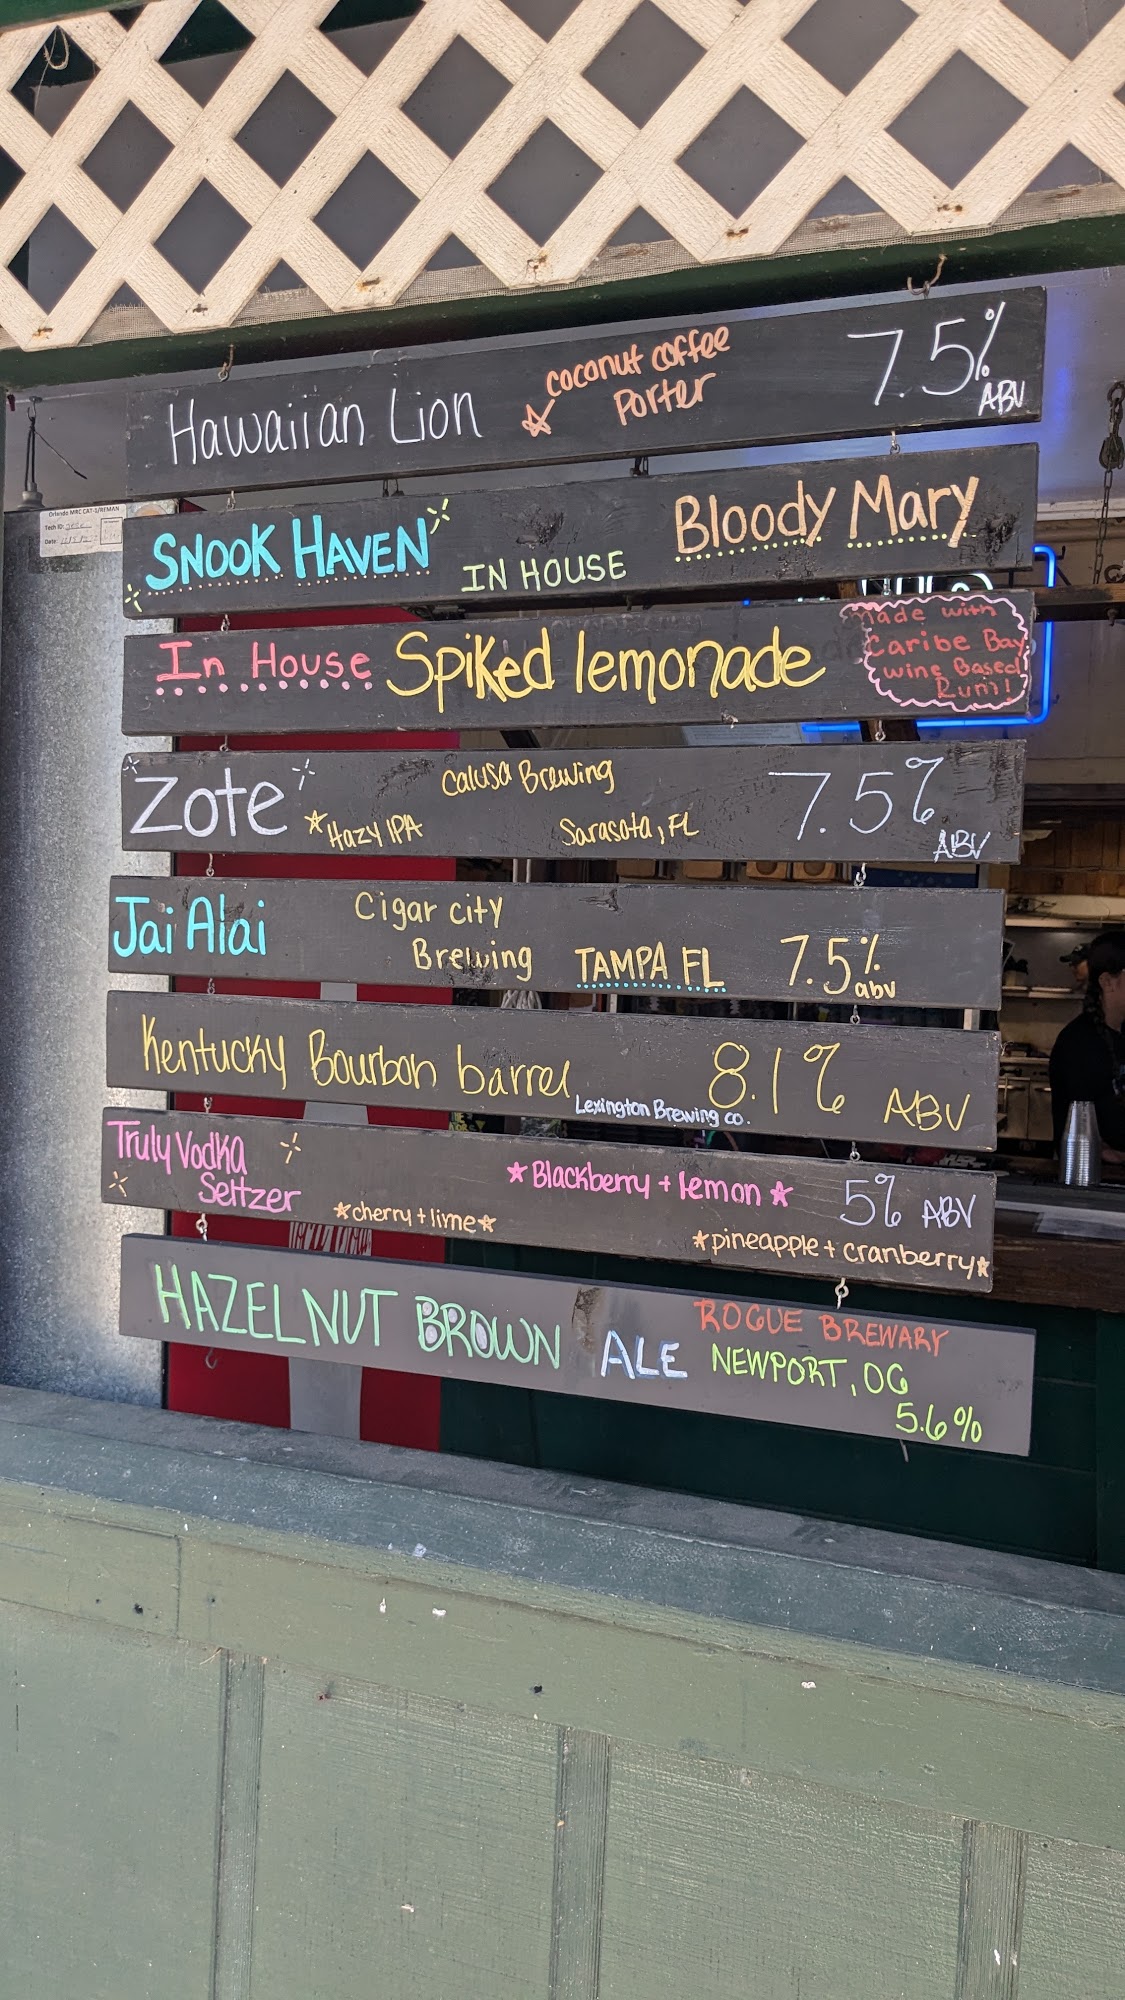 Hawaiian Lion
coconut coffee
porter
7.5%
ABV
SNOOK HAVEN
IN HOUSE
Bloody Mary
In House Spiked lemonade
Made with
Caribe Bay
wine Based
Rum!
Zote
Calusa Brewing
Hazy IPA
Sarasota, FL
7.5%
ABV
Jai Alai
Cigar city
Brewing
TAMPA FL
7.5%
abv
Kentucky Bourbon barrel
Lexington Brewing co.
8.1% ABV
Truly Vodka
Seltzer
cherry + lime
Blackberry + lemon
5% ABV
pineapple + cranberry
HAZELNUT BROWN ALE
ROGUE BREWARY
NEWPORT, OG
5.6%
Orlando MRC CAT-1/REMAN
Tech ID:
Date: